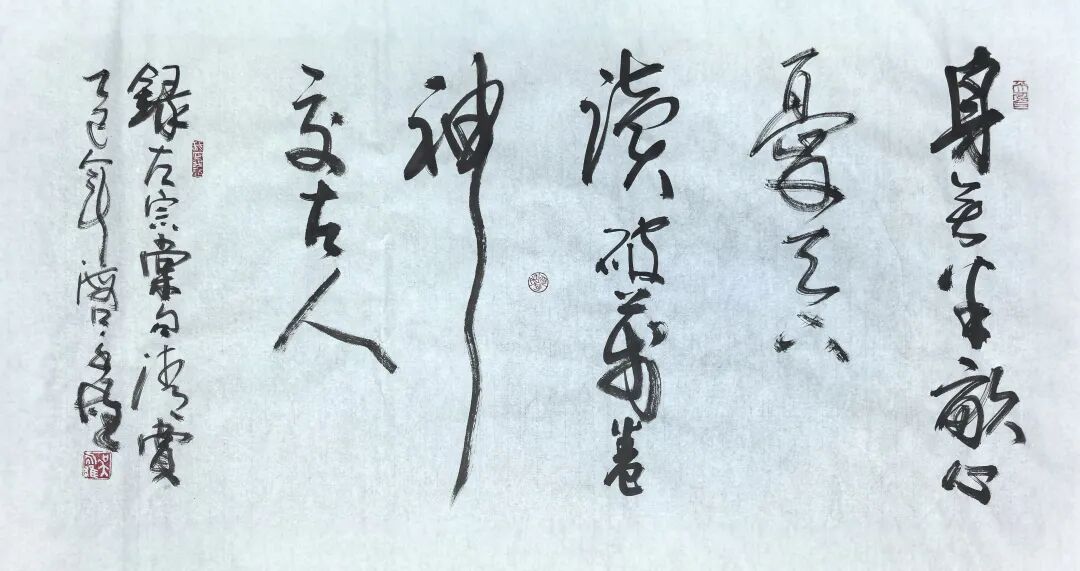 身無半畝心
憂天下
讀破萬卷
神
交古人
錄左宗棠句清賞
乙巳年海口